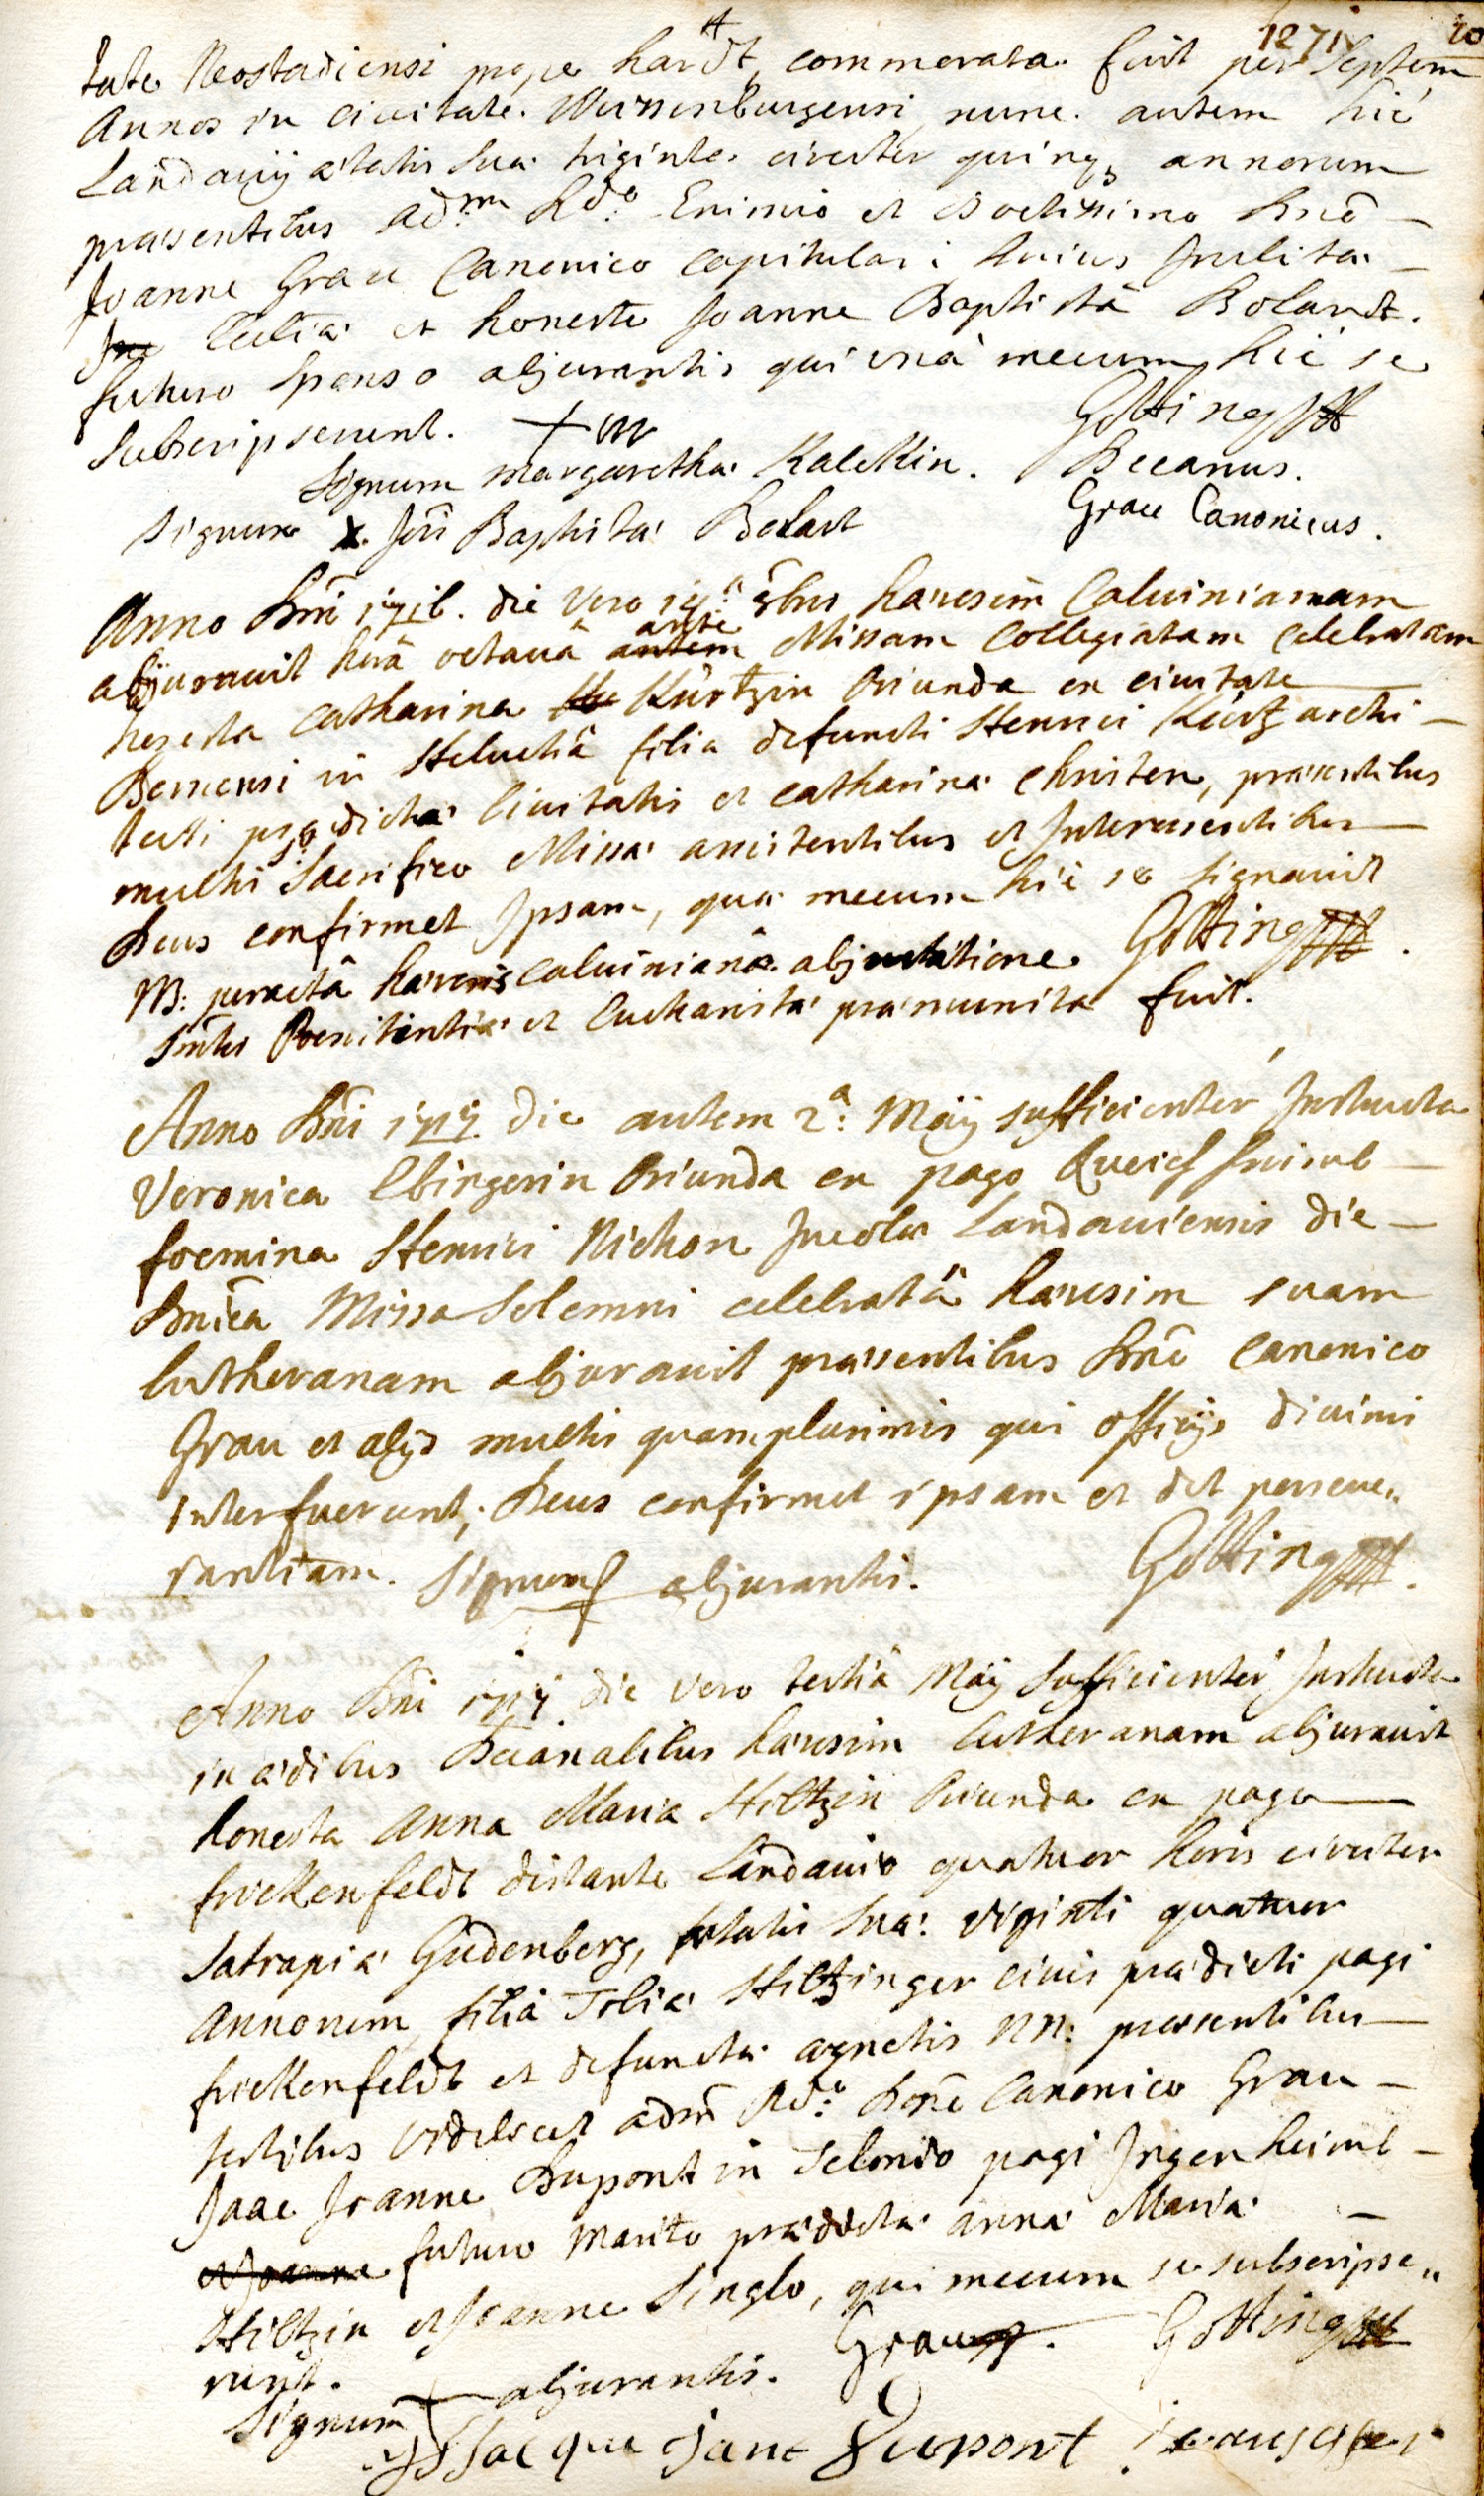 1271v 20
tate Neostadiensi prope hardt, commorata fuit per Septem
Annos in civitate Weissenburgensi, nunc autem hic
Landavij ætatis suæ triginta circiter quinq3 annorum
præsentibus adm Rdo Eximio et Doctissimo Dno
Joanne Grau Canonico Capitulari huius Inclitæ
Ecclia et honesto Joanne Baptista Bolandt
futuro Sponso abjurantis qui unà mecum hic se
Subscripserunt. Gotting
Signum + Margaretha Kalckin. Decanus.
Signum x Jois Baptista Bolart Grau Canonicus.
Anno Dni 1716. die vero 14a 9bris hæresim Calvinianam
abjuravit horâ octavâ ante Missam Collegiatam celebratam
honesta Catharina Kürtzin Oriunda ex civitate
Bernensi in Helvetiâ filia defuncti Henrici Kürtz archi
tecti prædictæ Civitatis et Catharina Christen, præsentibus
multis Sacrifico Missæ assistentibus et Interessentibus
Deus confirmet Ipsam, quæ mecum hic se signavit
NB: peractâ hæresis Calvinianæ abjuratione Gotting
Smtis Poenitentiæ et Eucharistiæ præmunita fuit.
Anno Dni 1717 die autem 2a: Maij sufficienter Instructa
Veronica Ebingerin Oriunda ex pago Queichheimb
foemina Henrici Nichon Incolæ Landaviensis die
Dnica Missa Solemni celebratâ hæresim suam
lutheranam abjuravit præsentibus Dno Canonico
Grau et alijs multis quamplurimis qui officijs divinis
interfuerunt; Deus confirmet ipsam et det perseve„
rantiam. Signum abjurantis. Gotting
Anno Dni 1717 die vero tertiâ Maij Sufficienter Instructa
in ædibus Decanalibus hæresim lutheranam abjuravit
honesta Anna Maria Hiltzin Oriunda ex pago
frickenfeldt distante Landavio quatuor horis circiter
Satrapiæ Gudenberg, ætatis suæ viginti quatuor
annorum, filia Tobiæ Hiltzinger civis prædicti pagi
frickenfeldt et defunctæ agnetis NN: præsentibus
testibus videlicet adm Rdo Dno Canonico Grau
Jaac Joanne Dupont in pagi Ingenheimb
et Joanne futuro Marito prædictæ annæ Mariæ
Hiltzin et Joanne Singlo, qui mecum se subscripse„
runt. Grau Gotting
Signum + abjurantis.
Jsac que jant Dupont